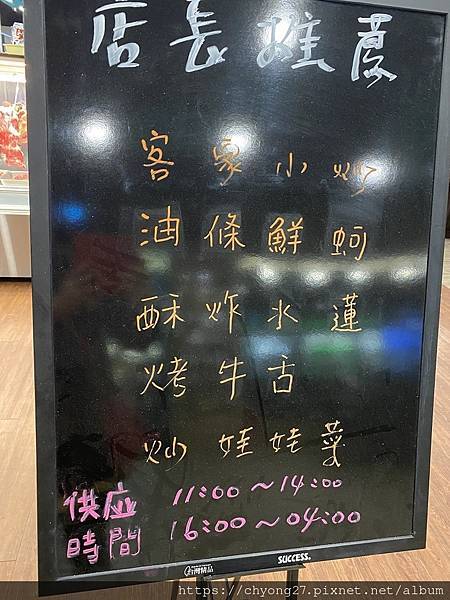 店長推薦
客家小炒
油條鮮蚵
酥炸水蓮
烤牛舌
炒娃娃菜
供应 11:00~14:00
時間 16:00~04:00
SUCCESS.
https://chyong27.pixnet.net/album